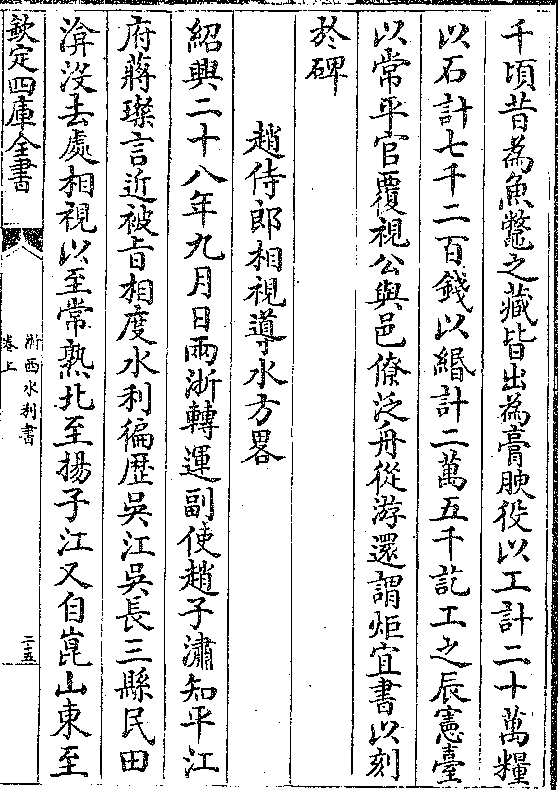 千頃昔為魚鼈之藏皆出為膏腴役以工計二十萬糧
以石計七千二百錢以緡計二萬五千訖工之辰憲臺
以常平官覆視公與邑僚泛舟從游還謂炬宜書以刻
於碑
趙侍郎相視導水方畧
紹興二十八年九月日兩浙轉運副使趙子潚知平江
府蔣璨言近被旨相度水利徧歴吳江吳長三縣民田
渰沒去處相視以至常熟北至揚子江又自崑山東至
欽定四庫全書
浙西水利書
卷上
二十五